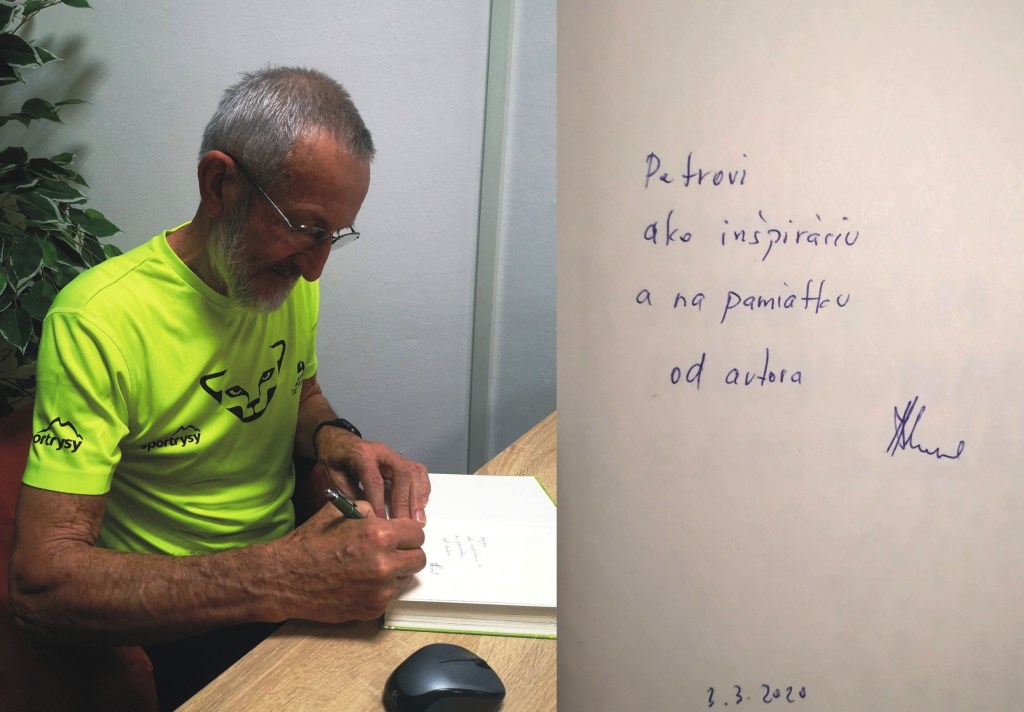 sportrysy
sportrysy
Petrovi
ako inšpiráciu
a na pamiatku
od autora
3.3.2020